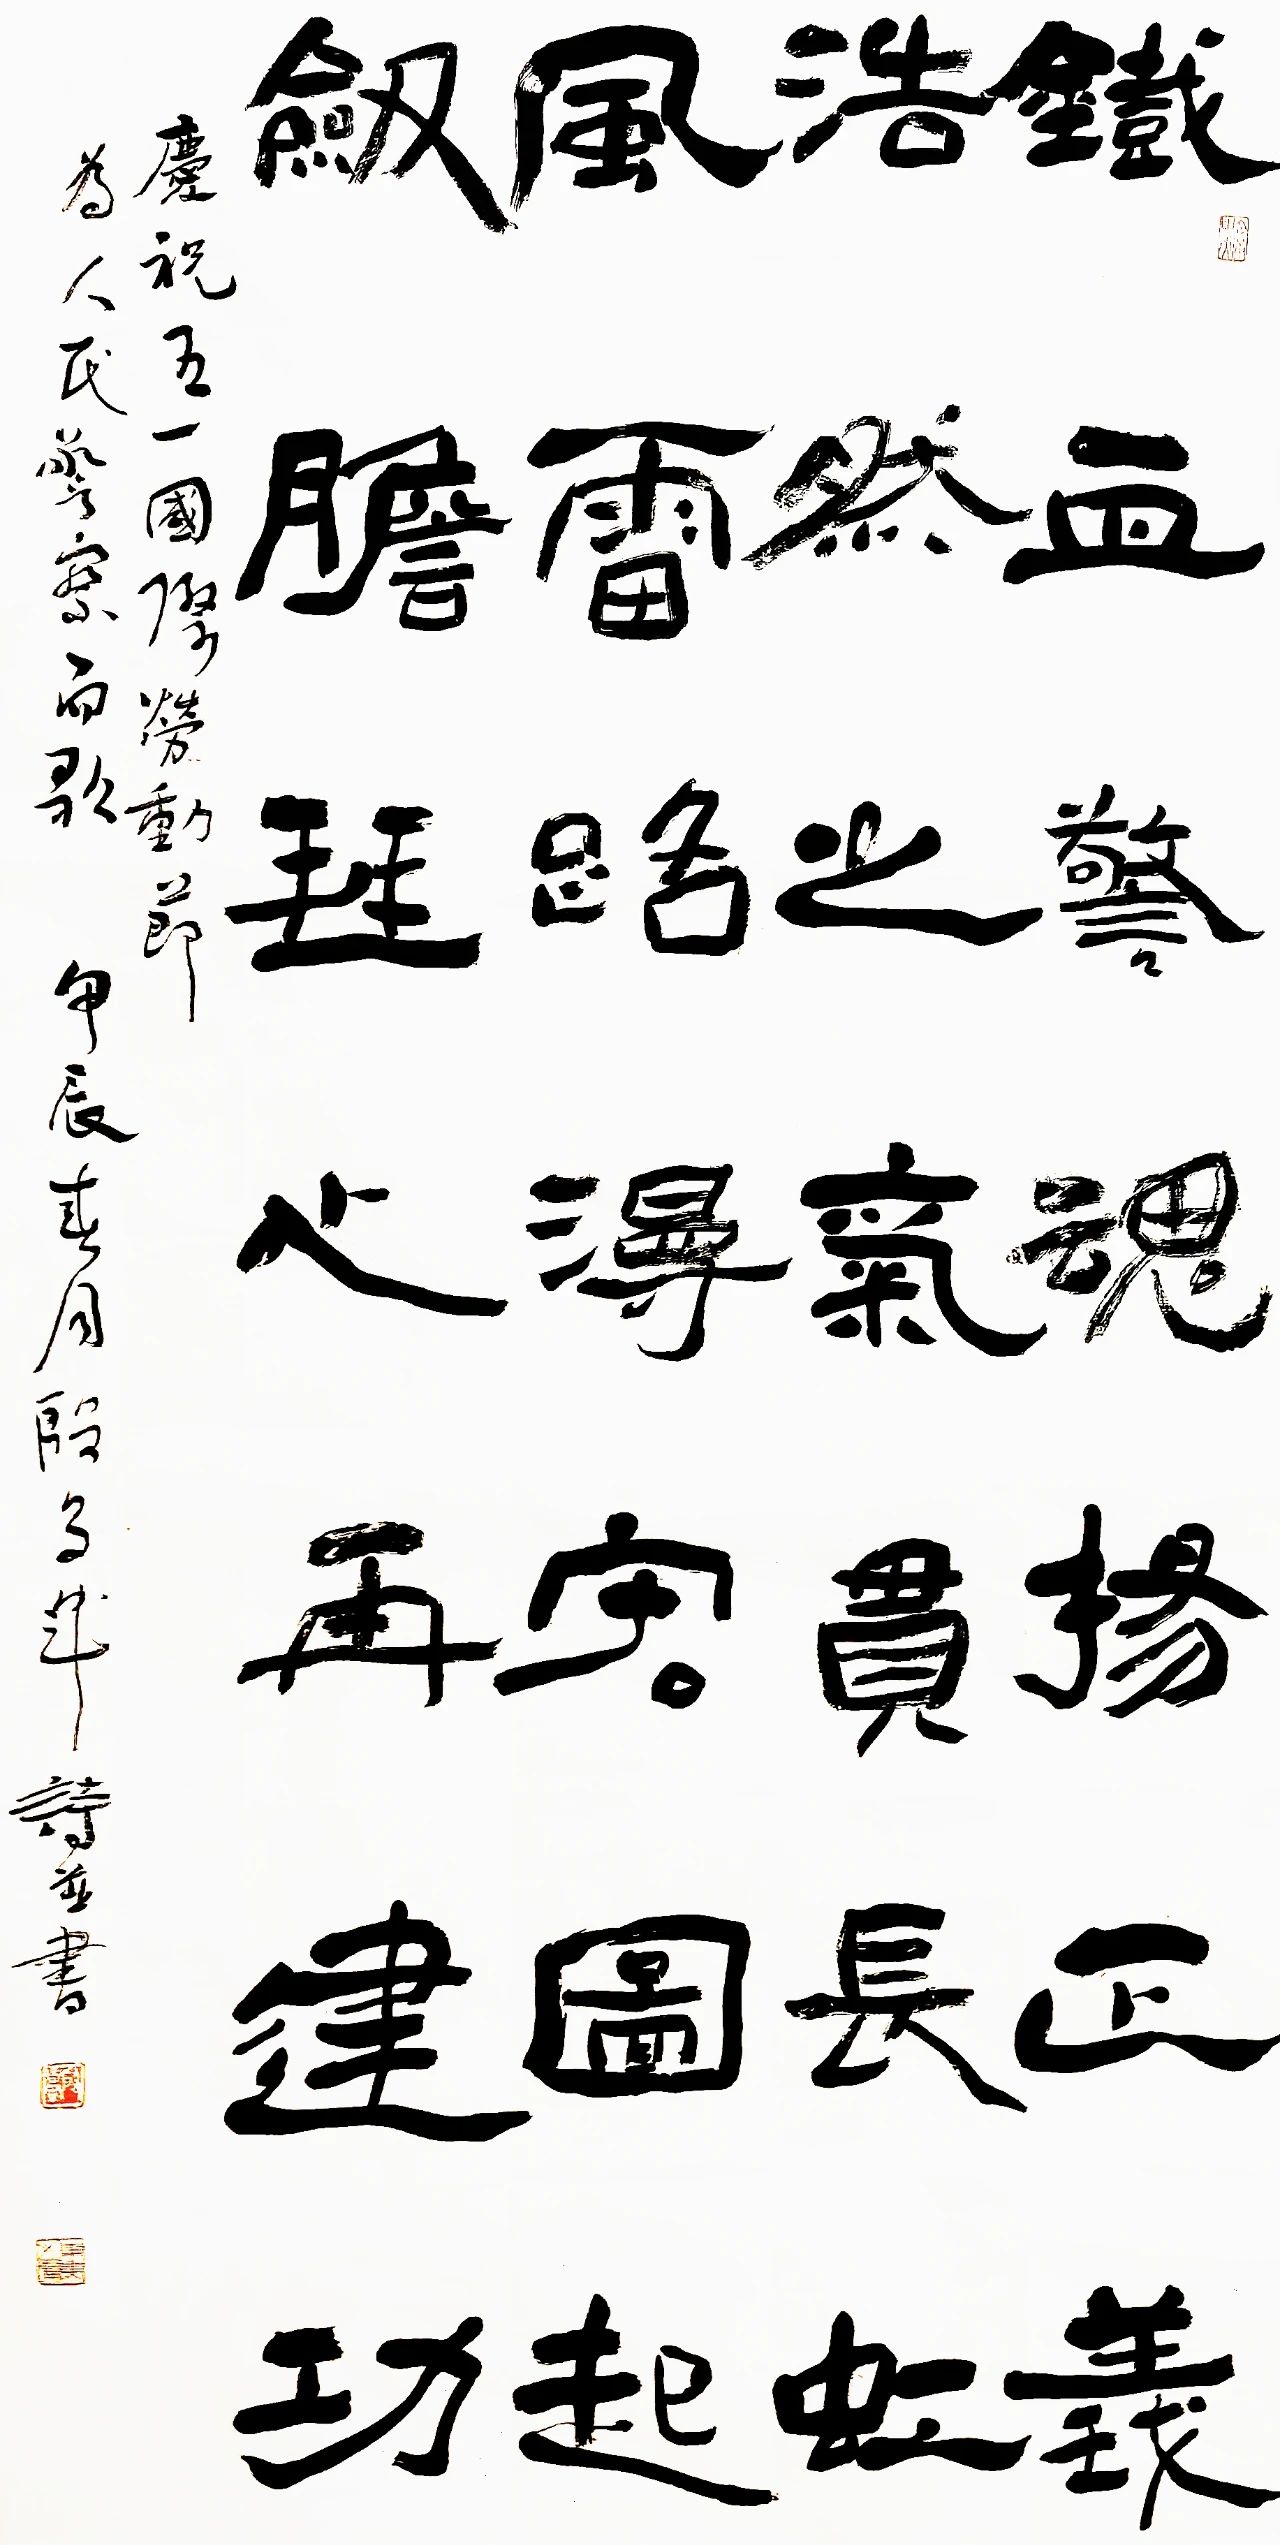 鐵血警魂揚正義
浩然之氣貫長虹
風雷路漫宏圖起
劔膽琴心再建功
慶祝五一國際勞動節
為人民警察而歌 甲辰春月殷 詩並書